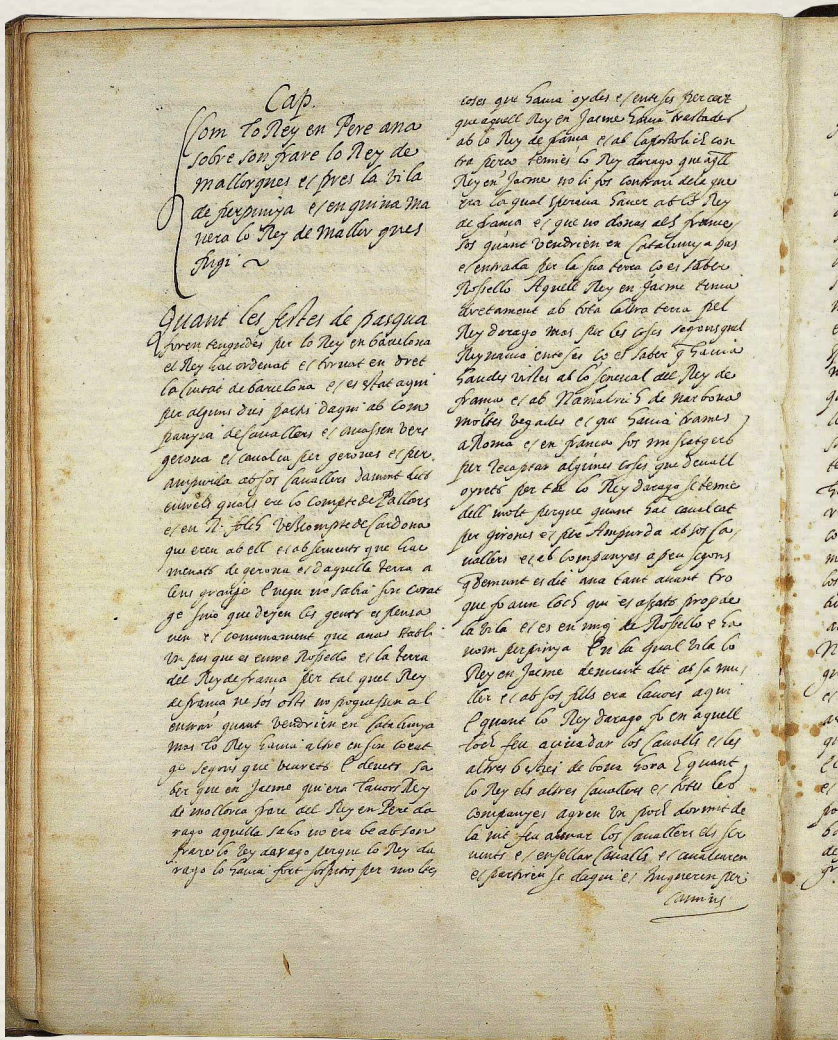 Cap.
Com lo Rey en Pere ana
sobre son frare lo Rey de
mallorques et pres la vila
de perpinya et en quina ma
nera lo Rey de mallorques
fugi
Quant les festes de pasqua
foren tengudes per lo Rey en barcelona
el Rey hac ordenat et tornat en dret
la Ciutat de barcelona et es estat aqui
per alguns dies parti daqui ab com
panyia de Cavallers et anassen vers
gerona et cavalca per gerones et per
ampurda ab sos Cavallers damunt dits
entrels quals ere lo Compte de Pallars
et en R. folch Vescompte de Cardona
que eren ab ell et ab servents que hac
menats de gerona et daquella terra a
lens negu no sabia son corat
ge sino que deyen les gents et pensa
ven et comunament que anas stabli
Un pas que es entre Rossello et la terra
del Rey de frança per tal quel Rey
de frança ne sos osts no poguessen al
entrar quant vendrien en Catalunya
mas lo Rey havia altre en son corat
ge segons que veurets E devets sa
ber que en Jacme qui era lavors Rey
de mallorca frare del Rey en Pere da
rago aquella saho no era be ab son
frare lo Rey darago perque lo Rey da
rago lo havia fort sospitos per moltes
coses que havia oydes et enteses per cert
que aquell Rey en Jacme havia tractades
ab lo Rey de frança et ab lapostolich con
tra perço temies lo Rey darago que aqll
Rey en Jacme no li fos contrari dela gue
rra la qual sperava haver ab lo Rey
de frança et que no donas als france
sos quant vendrien en Catalunya pas
et entrada per la sua terra ço es saber
Rossello Aquell Rey en Jacme tenia
dretament ab tota laltra terra pel
Rey darago mas per les coses segons quel
Rey navia enteses ço es saber q havia
haudes vistes ab lo senescal del Rey de
frança et ab Namalrich de narbona
moltes vegades et que havia trames
a Roma et en frança sos missatgers
per recaptar algunes coses que devall
oyrets per tal lo Rey darago se temie
dell molt perque quant hac cavalcat
per girones et per Ampurda ab sos Ca
vallers et ab Companyes a peu segons
q demunt es dit ana tant avant tro
que fo aun loch qui es assats prop de
la vila et es en mig de Rossello e ha
nom perpinya En la qual vila lo
Rey en Jacme demunt dit ab sa mu
ller et ab sos fills era lavors aqui
E quant lo Rey darago fo en aquell
loch feu aciviadar los Cavalls et les
altres besties de bona hora E quant
lo Rey els altres Cavallers et totes les
Companyes agren Un poch dormit de
la nit feu armar los Cavallers els ser
vents et ensellar Cavalls et cavalcaren
et partiren se daqui et tingueren per
camins